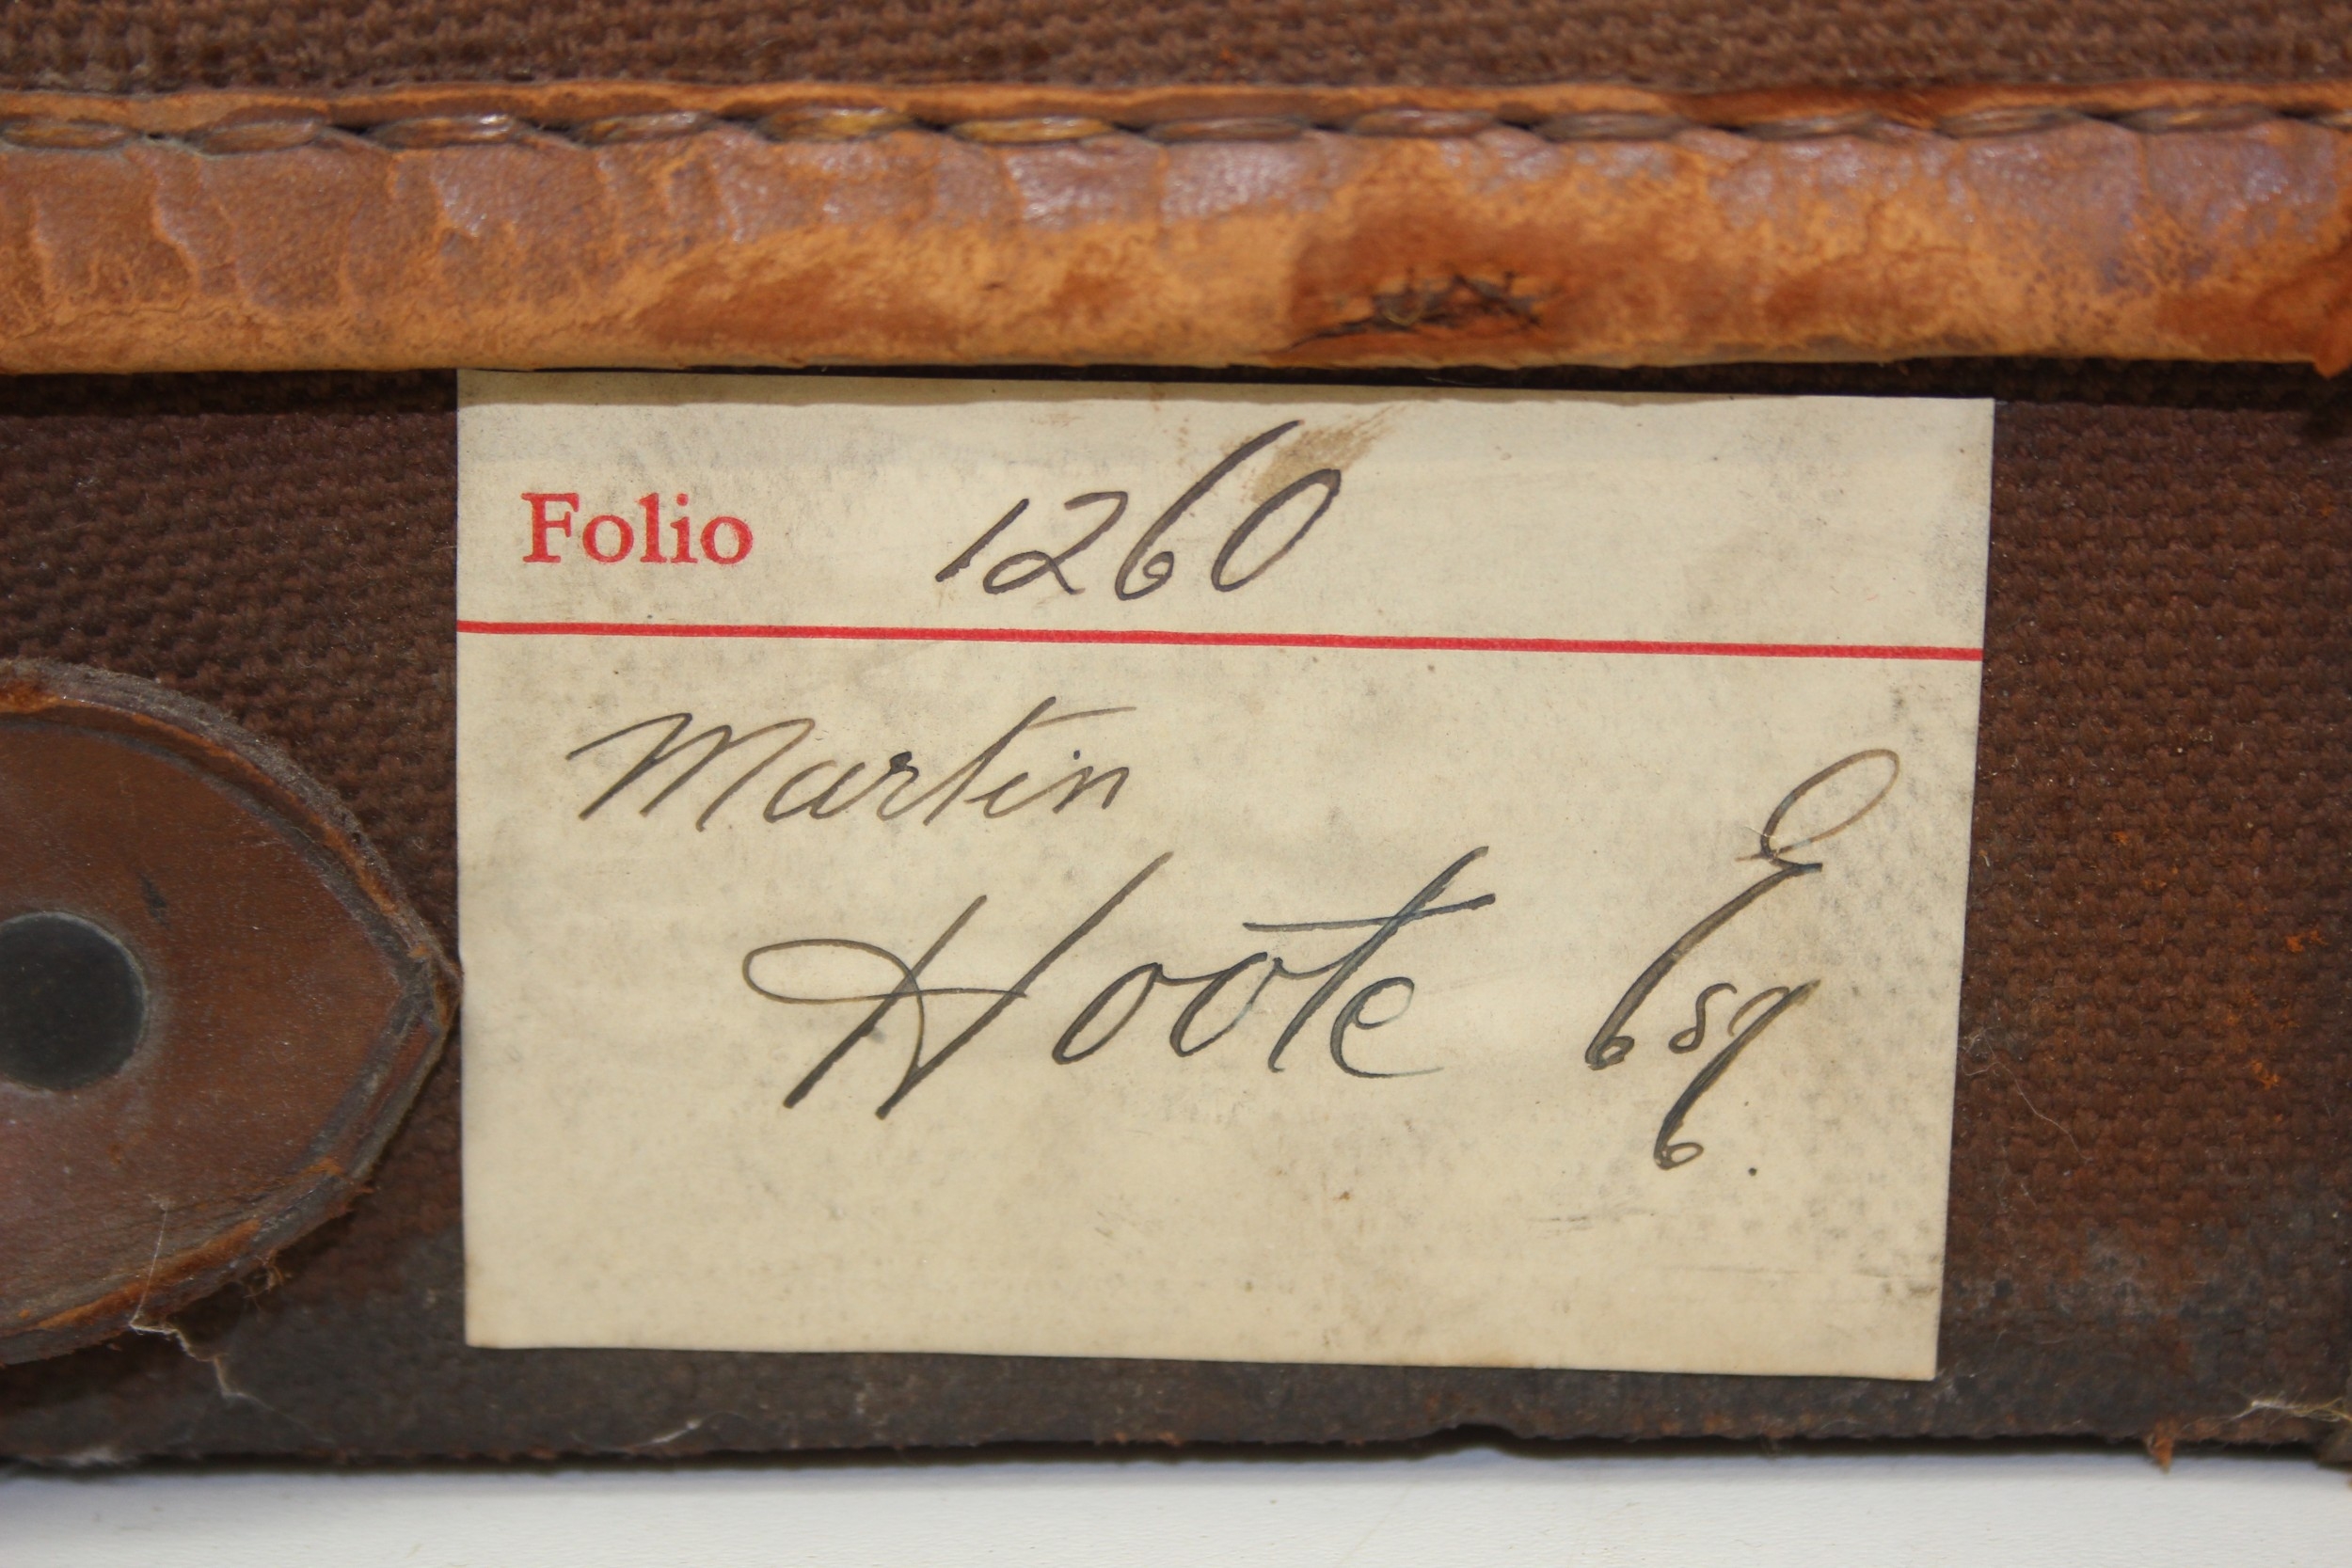 Folio 1260
Martin
Hoote Esq.